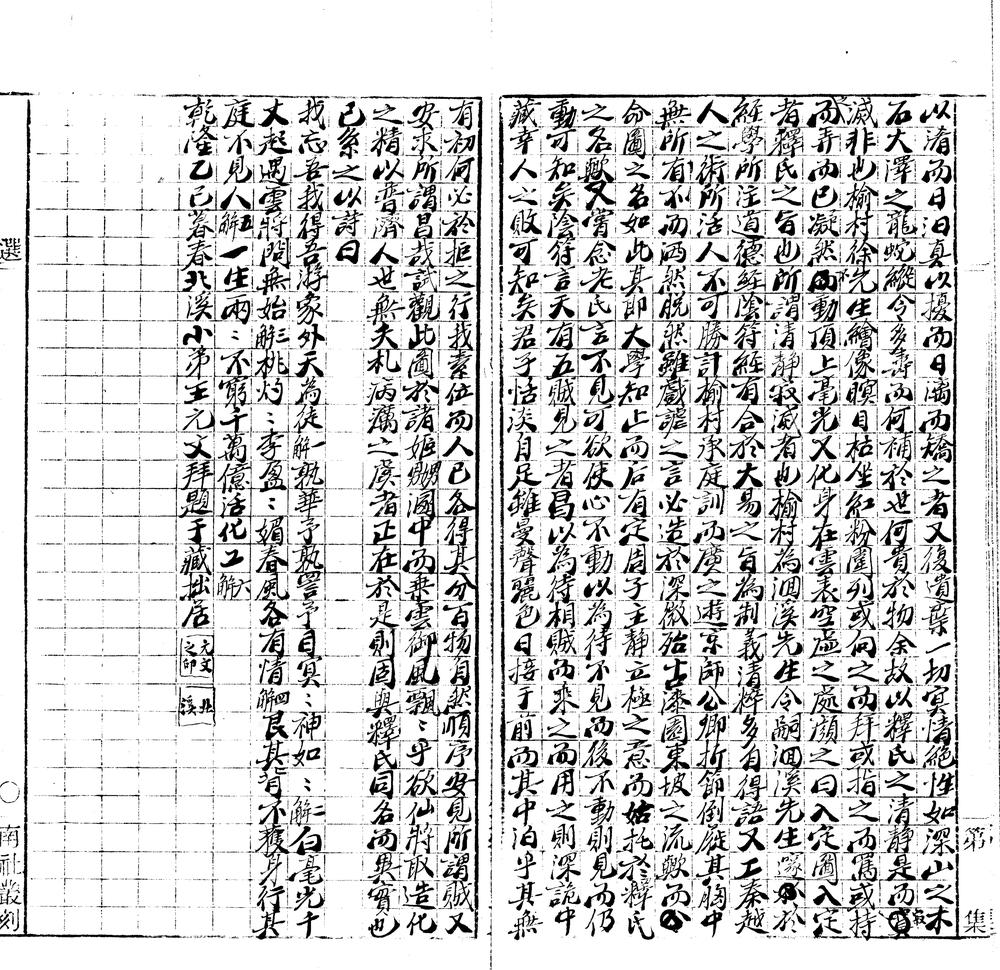 以淆而日汩真以擾而日漓而矯之者又復遺棄一切冥情絕性如深山之木
石大澤之龍蛇縱令多壽而何補於世何貴於物余故以釋氏之清靜是而寂
滅非也榆村徐先生繪像瞑目枯坐紅粉圍列或向之而拜或指之而罵或持
而弄而巳凝然不動頂上毫光又化身在雲表空虛之處顏之曰入定圖入定
者釋氏之旨也所謂清靜寂滅者也榆村為洄溪先生令嗣洄溪先生邃於
經學所注道德經陰符經有合於大易之旨為制義清粹多自得語又工秦越
人之術所活人不可勝計榆村承庭訓而廣之遊京師公卿折節倒屣其胸中
無所有不而洒然脫然雖戲謔之言必造於深微殆古漆園東坡之流歟而
命圖之名如此其即大學知止而后有定周子主靜立極之意而姑托於釋氏
之名歟又嘗念老氏言不見可欲使心不動以為待不見而後不動則見而仍
動可知矣陰符言天有五賊見之者昌以為待相賊而乘之而用之則深詭中
藏幸人之敗可知矣君子恬淡自足雖曼聲麗色日接于前而其中泊乎其無
有初何必於拒之行我素位而人已各得其分百物自然順序安見所謂賊又
安求所謂昌哉試觀此圖於諸姬嬲溷中而乘雲御風飄:乎欲仙將取造化
之精以普濟人世無夭札病癘之虞者正在於是則固與釋氏同名而異實也
已系之以詩曰
我忘吾我得吾游家外天為徒一解孰華予孰詈予目冥:神如:二解白毫光千
丈起遇雲將問無始三解桃灼:李盈:媚春風各有情四解艮其背不獲身行其
庭不見人五解一生兩:不窮千萬億活化工六解
乾隆乙巳暮春北溪小弟王元文拜題于藏拙居
元文之印
北溪
選
南社叢刻
第 集